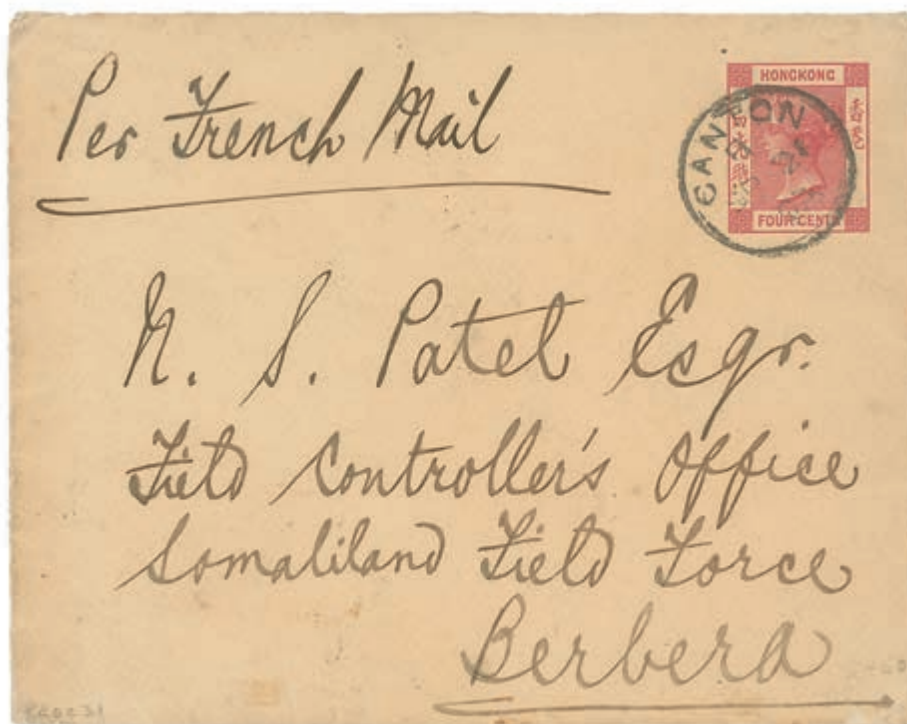 Per French Mail
HONGKONG
香港
四先時
FOUR CENTS
CANTON
N. S. Patel Esqr.
Field Controller's Office
Somaliland Field Force
Berbera